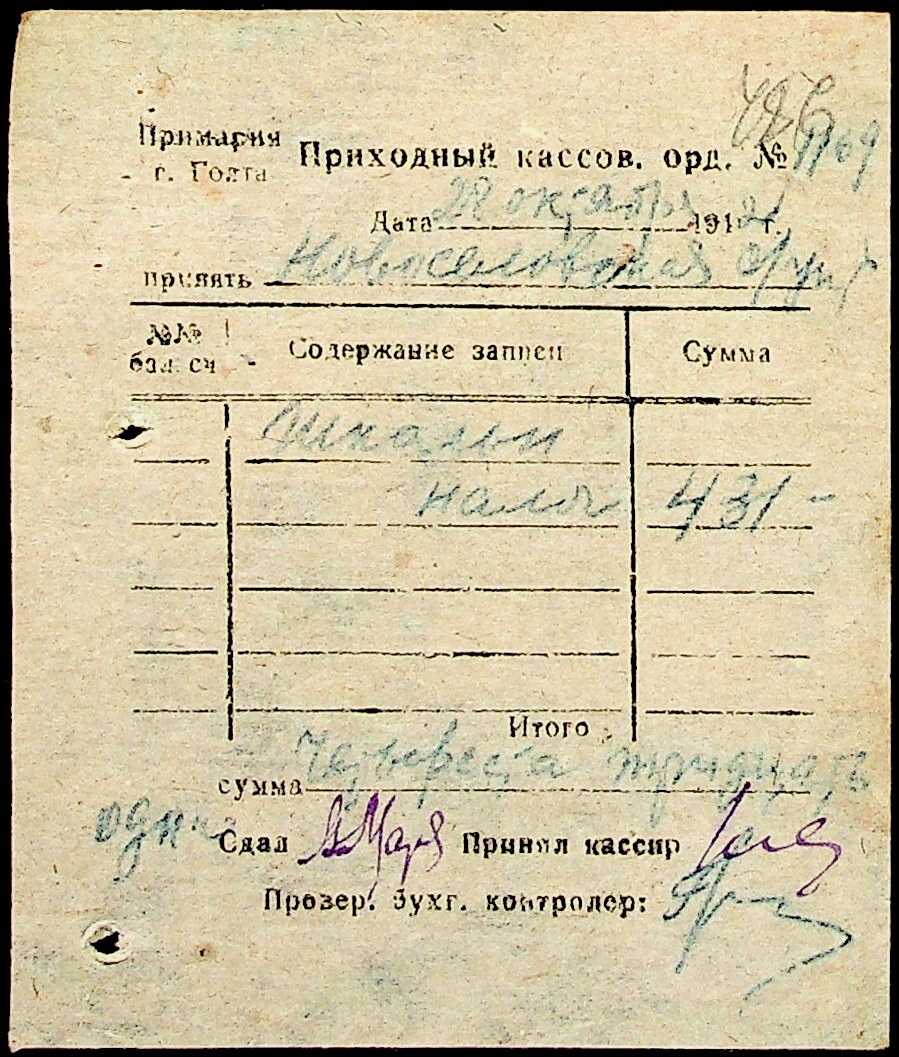 Примария
г. Голта
Приходный кассов. орд. № 1169
Дата 28 октября 194 2 г.
принять Новоселовская
№№
бал. сч
Содержание записи
Сумма
налог 431 -
Итого
сумма Четыреста тридцать
один
Сдал
Принял кассир
Провер. бухг. контролер: